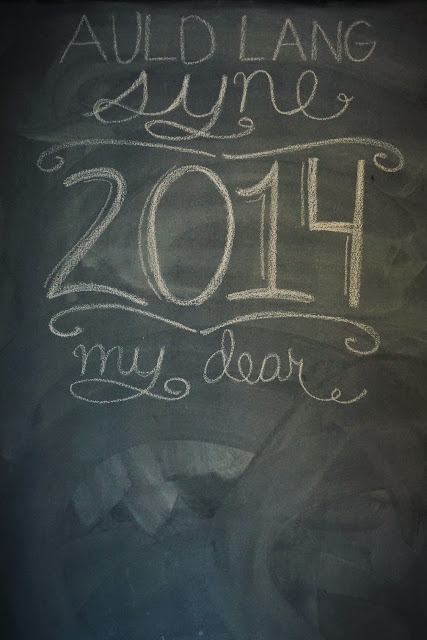 AULD LANG
syne
2014
my dear